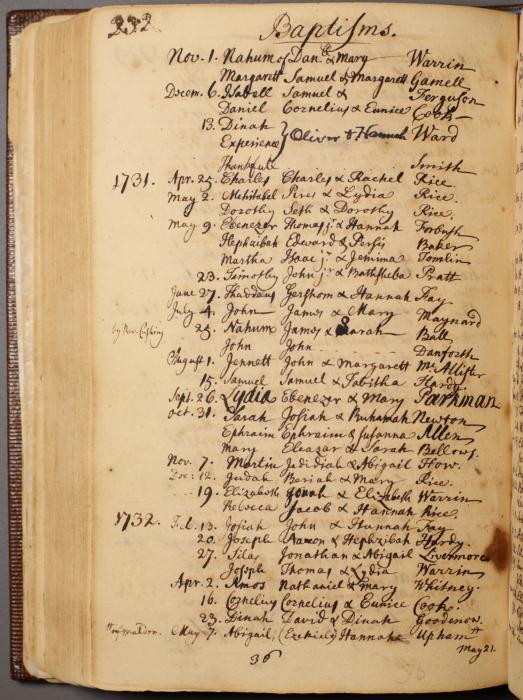 232
Baptisms.
Nov. 1. Nahum of Danll & Mary Warrin
Margarett Samuel & Margarett Gamell
Decem. 6. Isabell Samuel & Ferguson
Daniel Cornelius & Eunice Cook
13. Dinah
Experience } Oliver & Hannah Ward
Thankfull Smith
1731. Apr. 25. Charles Charles & Rachel Rice.
May 2. Mehitabel Peres & Lydia Rice.
Dorothy Seth & Dorothy Rice.
May 9. Ebenezer Thomas jr. & Hannah Forbush
Hephzibah Edward & Persis Baker
Martha Isaac jr. & Jemima Tomlin
23. Timothy John jr & Bathsheba Pratt
June 27. Thaddaus Gershom & Hannah Fay
July 4. John James & Mary Maynard
by Rev. Cushing 25. Nahum James & Sarah Ball
John John Danforth
August 1. Jennett John & Margarett McAllister
15. Samuel Samuel & Tabitha Hardy
Sept. 26. Lydia Ebenezer & Mary Parkman
Oct. 31. Sarah Josiah & Ruhamah Newton
Ephraim Ephraim & Susanna Allen
Mary Eleazar & Sarah Bellows.
Nov. 7. Martin Jedidiah & Abigail How.
Dec: 12. Judah Beriah & Mary Rice.
19. Elizabeth Jonah & Elizabeth Warrin
Rebecca Jacob & Hannah Rice.
1732. Feb. 13. Josiah John & Hannah Fay
20. Joseph Aaron & Hephzibah Hardy.
27. Silas Jonathan & Abigail Livermore
Joseph Thomas & Lydia Warrin
Apr. 2. Amos Nathaniel & Mary Whitney.
16. Cornelius Cornelius & Eunice Cook.
23. Dinah David & Dinah Goodenow.
of Maldon. May 7. Abigail, (Ezekiels) Hannah Upham
May 21.
36